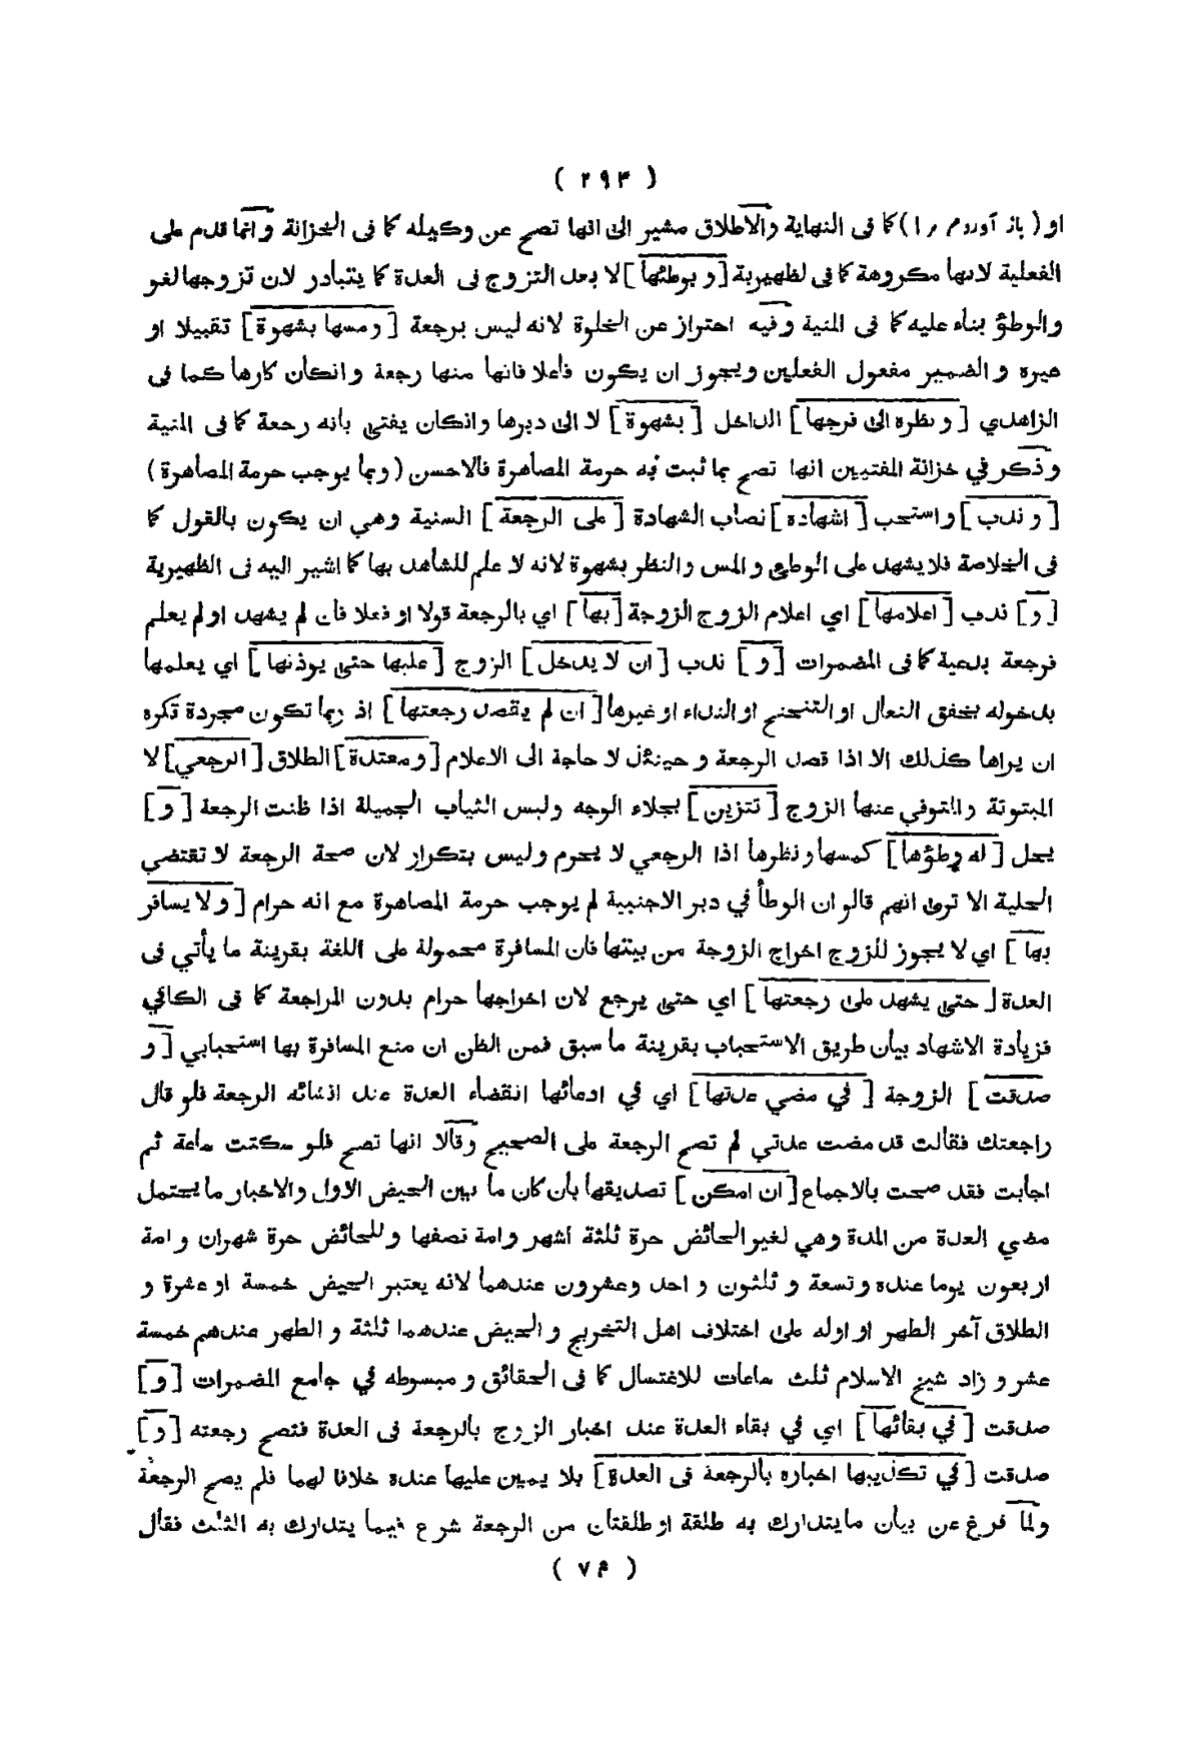 ( ٢٩٣ )
او ( باز آوردم را ) كما فى النهاية والاطلاق مشير الى انها تصح عن وكيله كما فى الخزانة وانما قدم على
الفعلية لانها مكروهة كما فى لظهيرية [ و بوطئها ] لا بعد التزوج فى العدة كما يتبادر لان تزوجها لغو
والوطؤ بناء عليه كما فى المنية وفيه احتراز عن الخلوة لانه ليس برجعة [ ومسها بشهوة ] تقبيلا او
غيره و الضمير مفعول الفعلين ويجوز ان يكون فاعلا فانها منها رجعة وانكان كارها كما فى
الزاهدي [ ونظره الى فرجها ] الداخل [ بشهوة ] لا الى دبرها وانكان يفتى بانه رجعة كما فى المنية
وذكر في خزانة المفتيين انها تصح بما ثبت به حرمة المصاهرة فالاحسن ( وبما يوجب حرمة المصاهرة )
[ و ندب ] واستحب [ اشهاده ] نصاب الشهادة [ على الرجعة ] السنية وهي ان يكون بالقول كما
فى الخلاصة فلا يشهد على الوطئ و المس والنظر بشهوة لانه لا علم للشاهد بها كما اشير اليه فى الظهيرية
[ و ] ندب [ اعلامها ] اي اعلام الزوج الزوجة [ بها ] اي بالرجعة قولا او فعلا فان لم يشهد او لم يعلم
فرجعة بدعية كما فى المضمرات [ و ] ندب [ ان لا يدخل ] الزوج [ عليها حتى يوذنها ] اي يعلمها
بدخوله بخفق النعال او التنحنح او النداء او غيرها [ ان لم يقصد رجعتها ] اذ ربما تكون مجردة تكره
ان يراها كذلك الا اذا قصد الرجعة و حينئذ لا حاجة الى الاعلام [ ومعتدة ] الطلاق [ الرجعي ] لا
المبتوتة والمتوفي عنها الزوج [ تتزين ] بجلاء الوجه ولبس الثياب الجميلة اذا ظنت الرجعة [ و ]
يحل [ له وطؤها ] كمسها ونظرها اذا الرجعي لا يحرم وليس بتكرار لان صحة الرجعة لا تقتضي
الحلية الا ترى انهم قالو ان الوطأ في دبر الاجنبية لم يوجب حرمة المصاهرة مع انه حرام [ ولا يسافر
بها ] اي لا يجوز للزوج اخراج الزوجة من بيتها فان المسافرة محمولة على اللغة بقرينة ما يأتي فى
العدة [ حتى يشهد على رجعتها ] اي حتى يرجع لان اخراجها حرام بدون المراجعة كما فى الكافي
فزيادة الاشهاد بيان طريق الاستحباب بقرينة ما سبق فمن الظن ان منع المسافرة بها استحبابي [ و
صدقت ] الزوجة [ في مضي عدتها ] اي في ادعائها انقضاء العدة عند انشائه الرجعة فلو قال
راجعتك فقالت قد مضت عدتي لم تصح الرجعة على الصحيح وقالا انها تصح فلو سكتت ساعة ثم
اجابت فقد صحت بالاجماع [ ان امكن ] تصديقها بان كان ما بين الحيض الاول والاخبار ما يحتمل
مضي العدة من المدة وهي لغير الحائض حرة ثلثة اشهر وامة نصفها وللحائض حرة شهران وامة
اربعون يوما عنده وتسعة و ثلثون و احد وعشرون عندهما لانه يعتبر الحيض خمسة او عشرة و
الطلاق آخر الطهر او اوله على اختلاف اهل التخريج و الحيض عندهما ثلثة و الطهر عندهم خمسة
عشر و زاد شيخ الاسلام ثلث ساعات للاغتسال كما فى الحقائق و مبسوطه في جامع المضمرات [ و ]
صدقت [ في بقائها ] اي في بقاء العدة عند اخبار الزوج بالرجعة فى العدة فتصح رجعته [ و ]
صدقت [ في تكذيبها اخباره بالرجعة فى العدة ] بلا يمين عليها عنده خلافا لهما فلم يصح الرجعة
ولما فرغ عن بيان ما يتدارك به طلقة او طلقتان من الرجعة شرع فيما يتدارك به الثلث فقال
( ٧٤ )